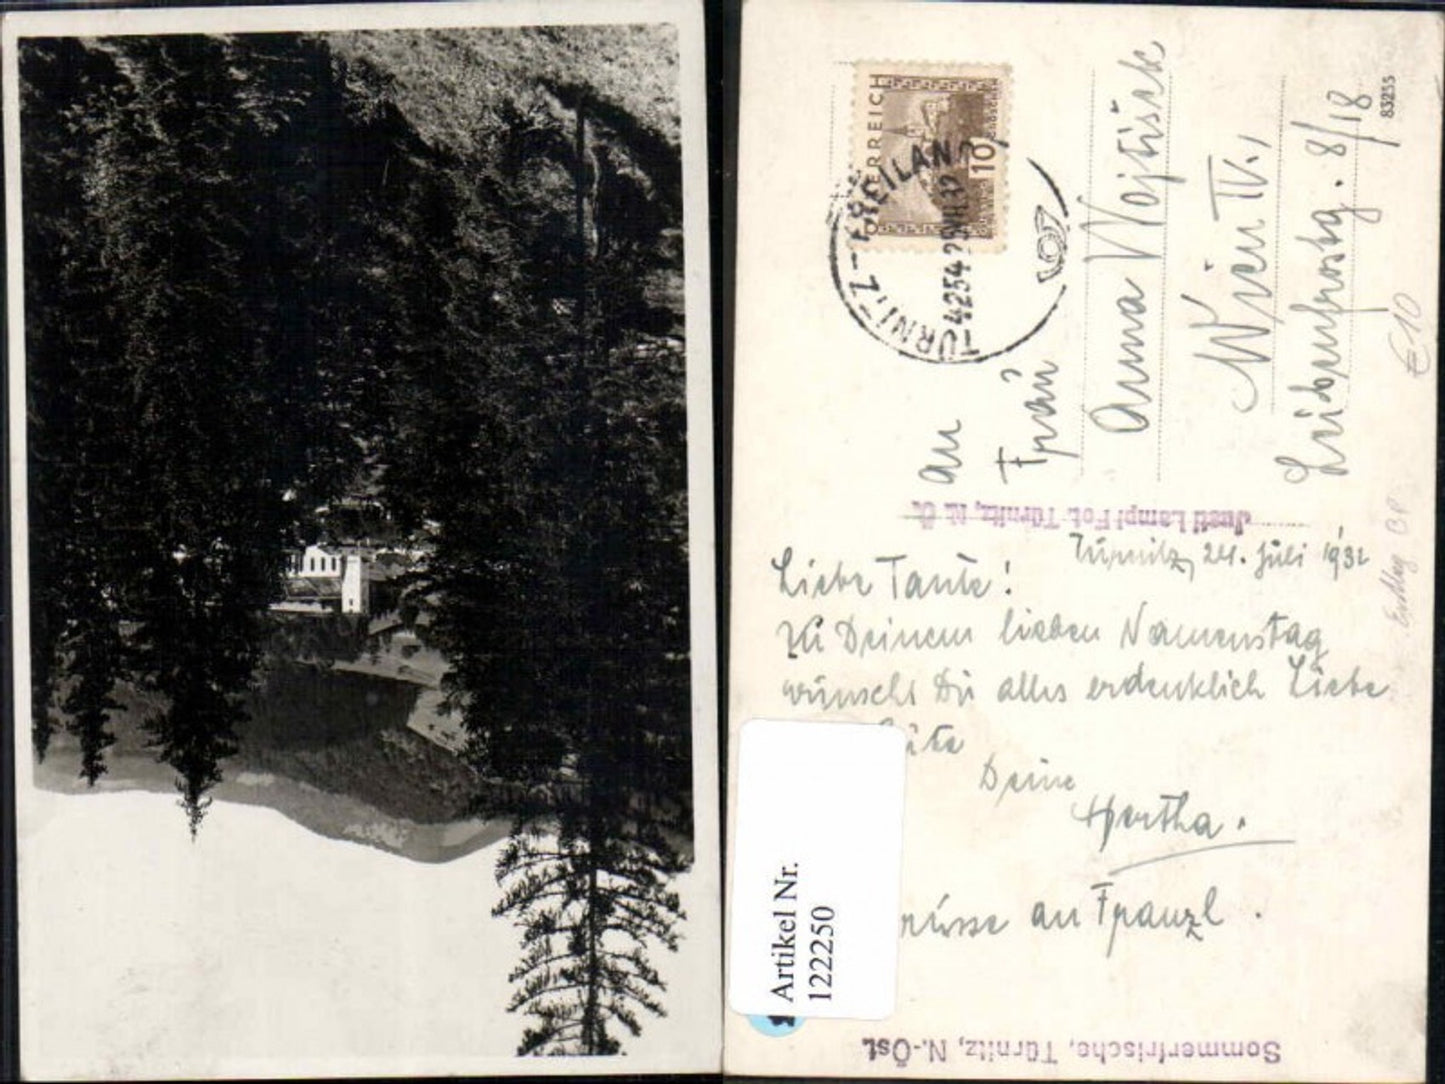 ÖSTERREICH
10
TÜRNITZ-FREILAND
4254 25.VII.32
An
Frau
Anna Wojtišek
Wien IV.,
8/18
83255
€10
Justi Lampl Fot. Türnitz, N. Ö.
Türnitz, 24. Juli 1932
Liebe Tante!
Zu Deinem lieben Namenstag
wünscht Dir alles erdenklich Liebe
Deine
Hertha.
an Franzl.
Sommerfrische, Türnitz, N.-Öst.
Artikel Nr.
122250